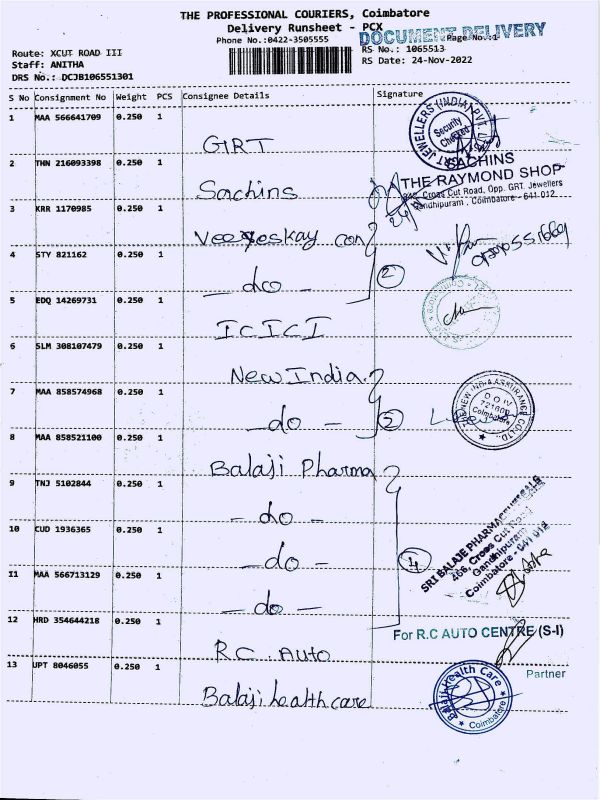 THE PROFESSIONAL COURIERS, Coimbatore
Delivery Runsheet - PCX
DOCUMENT DELIVERY
Phone No.:0422-3505555
Page No.:1
Route: XCUT ROAD III
RS No.: 1065513
Staff: ANITHA
RS Date: 24-Nov-2022
DRS No.: DCJB106551301
S No Consignment No Weight PCS Consignee Details Signature
1 MAA 566641709 0.250 1
GRT
JEWELLERS (INDIA) PVT
Security
Checked
2 THN 216093398 0.250 1
Sachins
SACHINS
THE RAYMOND SHOP
Cross Cut Road, Opp. GRT. Jewellers
Gandhipuram, Coimbatore - 641 012
3 KRR 1170985 0.250 1
4 STY 821162 0.250 1
do
2
5 EDQ 14269731 0.250 1
ICICI
6 SLM 308107479 0.250 1
New India
7 MAA 858574968 0.250 1
- do -
2
THE NEW INDIA ASSURANCE CO. LTD.
D O IV
721600
Coimbatore
8 MAA 858521100 0.250 1
Balaji Pharma
9 TNJ 5102844 0.250 1
- do -
10 CUD 1936365 0.250 1
- do -
4
SRI BALAJE PHARMACEUTICALS
466, Cross Cut Road
Gandhipuram
Coimbatore - 641 012
11 MAA 566713129 0.250 1
- do -
12 HRD 354644218 0.250 1
R.C. Auto
For R.C AUTO CENTRE (S-I)
Partner
13 UPT 8046055 0.250 1
Balaji healthcare
Balaji Health Care
Coimbatore